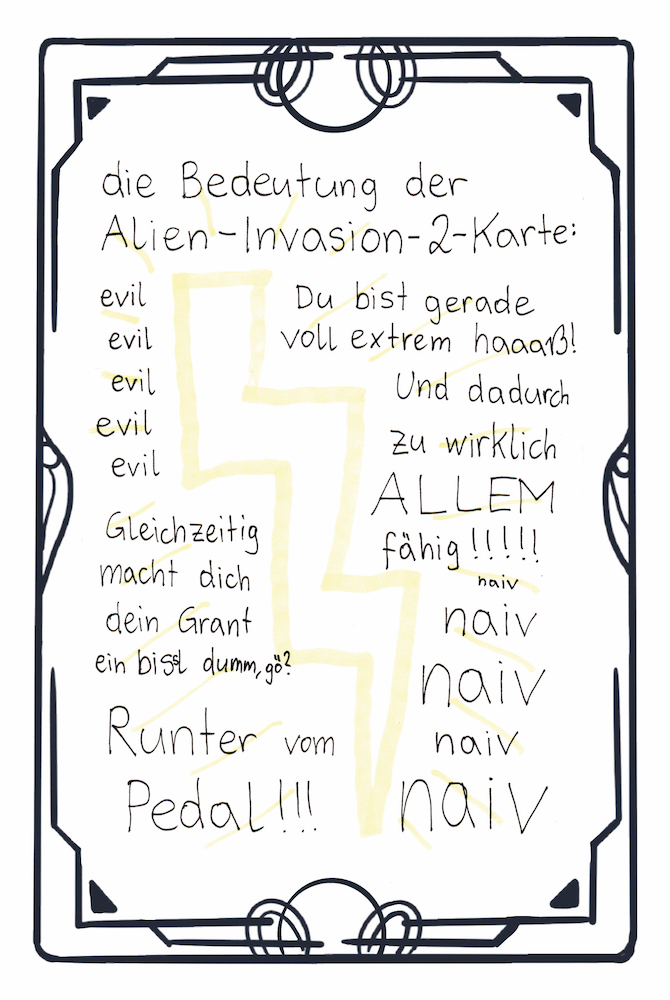 die Bedeutung der
Alien-Invasion-2-Karte:
evil
evil
evil
evil
evil
Du bist gerade
voll extrem haaaß!
Und dadurch
zu wirklich
ALLEM
fähig!!!!!
Gleichzeitig
macht dich
dein Grant
ein bissl dumm, gö?
Runter vom
Pedal!!!
naiv
naiv
naiv
naiv
naiv